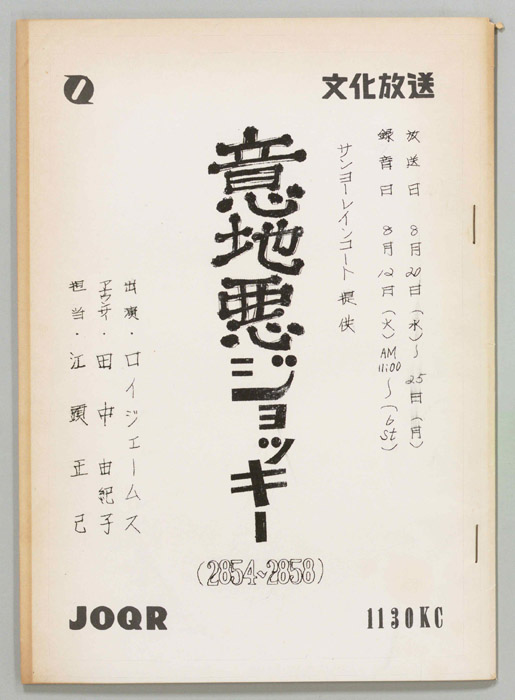 文化放送
放送日 8月20日(水)～25日(月)
録音日 8月12日(火)AM11:00～(6st)
サンヨーレインコート 提供
意地悪ジョッキー
(2854～2858)
出演・ロイジェームス
アナウンサー・田中由紀子
担当・江頭正己
JOQR
1130KC